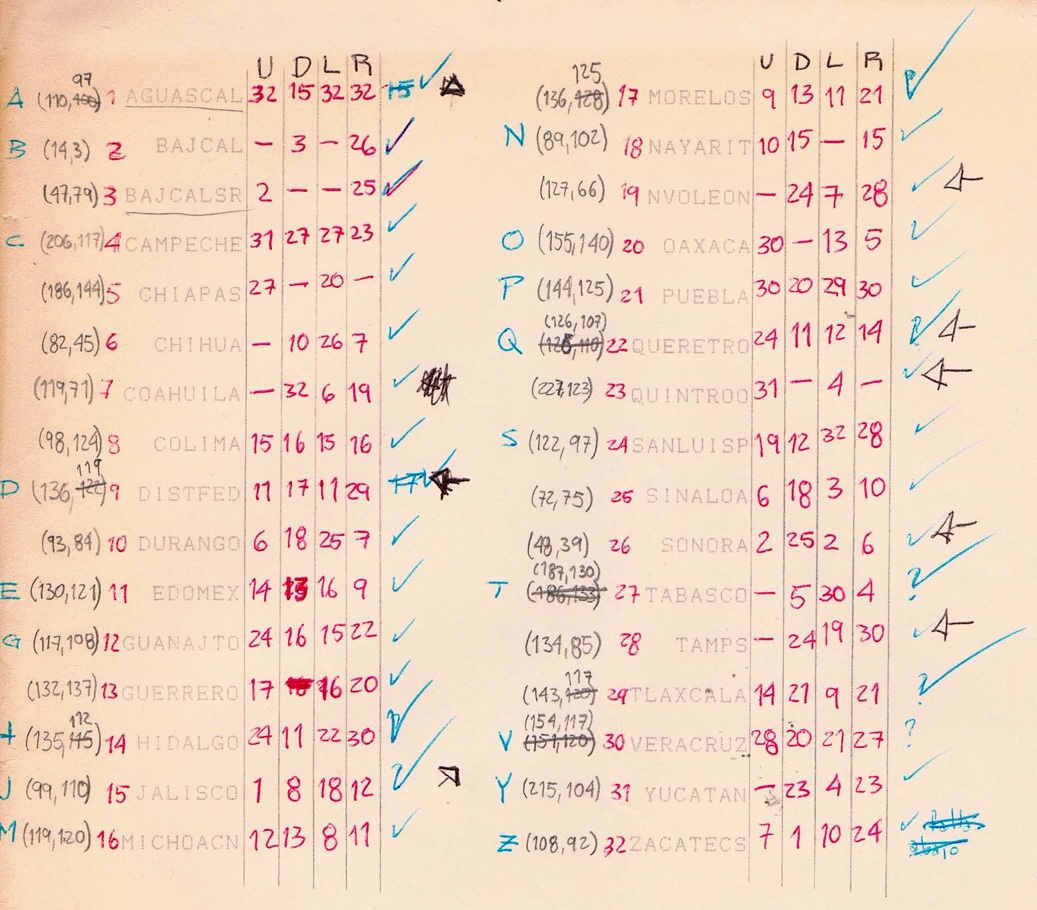 U D L R
97
A (110,100) 1 AGUASCAL 32 15 32 32 15
B (14,3) 2 BAJCAL — 3 — 26
(47,79) 3 BAJCALSR 2 — — 25
C (206,117) 4 CAMPECHE 31 27 27 23
(186,144) 5 CHIAPAS 27 — 20 —
(82,45) 6 CHIHUA — 10 26 7
(119,71) 7 COAHUILA — 32 6 19
(98,124) 8 COLIMA 15 16 15 16
119
D (136,122) 9 DISTFED 11 17 11 29 17
(93,84) 10 DURANGO 6 18 25 7
E (130,121) 11 EDOMEX 14 13 16 9
G (117,108) 12 GUANAJTO 24 16 15 22
(132,137) 13 GUERRERO 17 16 20
112
H (135,115) 14 HIDALGO 24 11 22 30
J (99,110) 15 JALISCO 1 8 18 12
M (119,120) 16 MICHOACN 12 13 8 11
U D L R
125
(136,128) 17 MORELOS 9 13 11 21
N (89,102) 18 NAYARIT 10 15 — 15
(127,66) 19 NVOLEON — 24 7 28
O (155,140) 20 OAXACA 30 — 13 5
P (144,125) 21 PUEBLA 30 20 29 30
(126,107)
Q (125,110) 22 QUERETRO 24 11 12 14
(227,123) 23 QUINTROO 31 — 4 —
S (122,97) 24 SANLUISP 19 12 32 28
(72,75) 25 SINALOA 6 18 3 10
(48,39) 26 SONORA 2 25 2 6
(187,130)
T (186,133) 27 TABASCO — 5 30 4 ?
(134,85) 28 TAMPS — 24 19 30
117
(143,120) 29 TLAXCALA 14 21 9 21 ?
(154,117)
V (151,120) 30 VERACRUZ 28 20 21 27 ?
Y (215,104) 31 YUCATAN — 23 4 23
Z (108,92) 32 ZACATECS 7 1 10 24